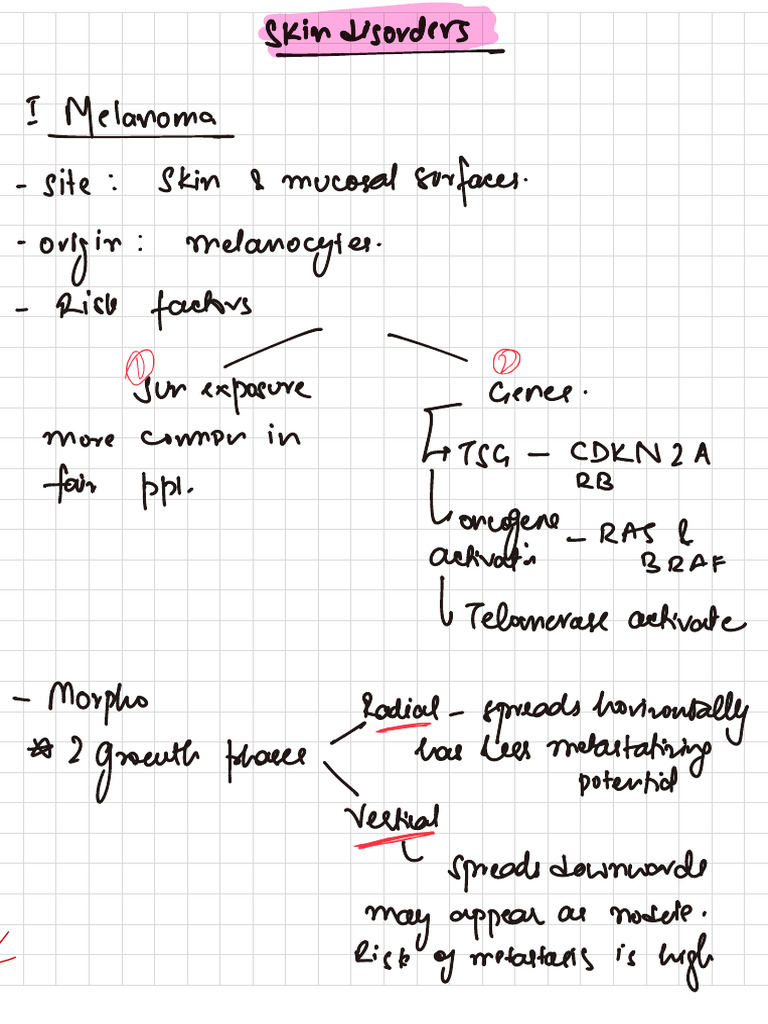 Skin disorders
I Melanoma
- Site : Skin & mucosal surfaces.
- origin : melanocytes.
- Risk factors
①
Sun exposure
more common in
fair ppl.
②
Genes.
→ TSG - CDKN2A
RB
oncogene
activatn - RAS &
BRAF
Telomerase activate
- Morpho
* 2 growth phases
Radial - spreads horizontally
has less metastatizing
potential
Vertical
spreads downwards
may appear as nodule.
Risk of metastasis is high